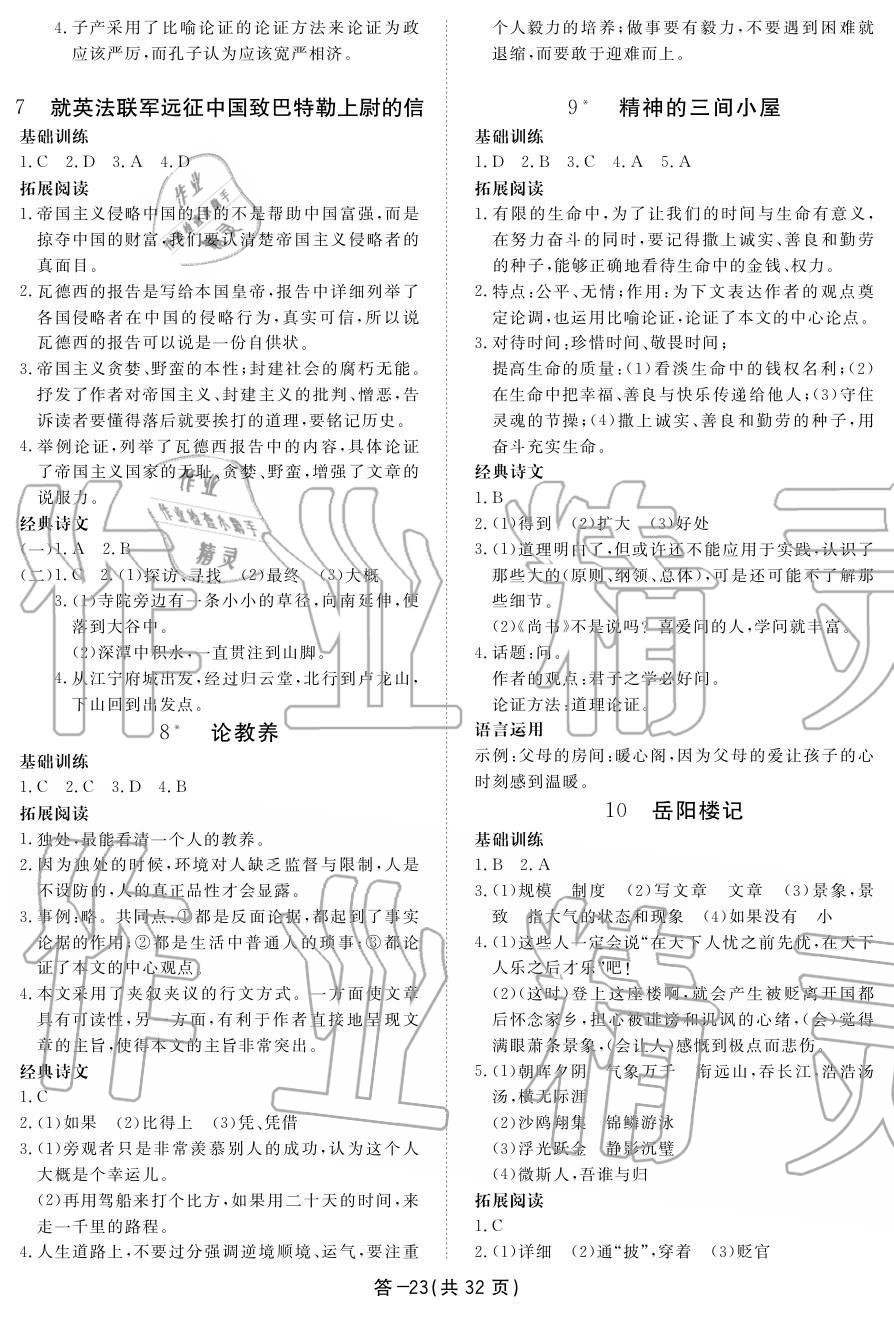 4.子产采用了比喻论证的论证方法来论证为政
应该严厉,而孔子认为应该宽严相济。
7 就英法联军远征中国致巴特勒上尉的信
基础训练
1.C 2.D 3.A 4.D
拓展阅读
1.帝国主义侵略中国的目的不是帮助中国富强,而是
掠夺中国的财富,我们要认清楚帝国主义侵略者的
真面目。
2.瓦德西的报告是写给本国皇帝,报告中详细列举了
各国侵略者在中国的侵略行为,真实可信,所以说
瓦德西的报告可以说是一份自供状。
3.帝国主义贪婪、野蛮的本性;封建社会的腐朽无能。
抒发了作者对帝国主义、封建主义的批判、憎恶,告
诉读者要懂得落后就要挨打的道理,要铭记历史。
4.举例论证,列举了瓦德西报告中的内容,具体论证
了帝国主义国家的无耻、贪婪、野蛮,增强了文章的
说服力。
经典诗文
(一)1.A 2.B
(二)1.C 2.(1)探访、寻找 (2)最终 (3)大概
3.(1)寺院旁边有一条小小的草径,向南延伸,便
落到大谷中。
(2)深潭中积水,一直贯注到山脚。
4.从江宁府城出发,经过归云堂,北行到卢龙山,
下山回到出发点。
8* 论教养
基础训练
1.C 2.C 3.D 4.B
拓展阅读
1.独处,最能看清一个人的教养。
2.因为独处的时候,环境对人缺乏监督与限制,人是
不设防的,人的真正品性才会显露。
3.事例:略。共同点:①都是反面论据,都起到了事实
论据的作用;②都是生活中普通人的琐事;③都论
证了本文的中心观点。
4.本文采用了夹叙夹议的行文方式。一方面使文章
具有可读性,另一方面,有利于作者直接地呈现文
章的主旨,使得本文的主旨非常突出。
经典诗文
1.C
2.(1)如果 (2)比得上 (3)凭、凭借
3.(1)旁观者只是非常羡慕别人的成功,认为这个人
大概是个幸运儿。
(2)再用驾船来打个比方,如果用二十天的时间,来
走一千里的路程。
4.人生道路上,不要过分强调逆境顺境、运气,要注重
个人毅力的培养;做事要有毅力,不要遇到困难就
退缩,而要敢于迎难而上。
9* 精神的三间小屋
基础训练
1.D 2.B 3.C 4.A 5.A
拓展阅读
1.有限的生命中,为了让我们的时间与生命有意义,
在努力奋斗的同时,要记得撒上诚实、善良和勤劳
的种子,能够正确地看待生命中的金钱、权力。
2.特点:公平、无情;作用:为下文表达作者的观点奠
定论调,也运用比喻论证,论证了本文的中心论点。
3.对待时间:珍惜时间、敬畏时间;
提高生命的质量:(1)看淡生命中的钱权名利;(2)
在生命中把幸福、善良与快乐传递给他人;(3)守住
灵魂的节操;(4)撒上诚实、善良和勤劳的种子,用
奋斗充实生命。
经典诗文
1.B
2.(1)得到 (2)扩大 (3)好处
3.(1)道理明白了,但或许还不能应用于实践,认识了
那些大的(原则、纲领、总体),可是还可能不了解那
些细节。
(2)《尚书》不是说吗?喜爱问的人,学问就丰富。
4.话题:问。
作者的观点:君子之学必好问。
论证方法:道理论证。
语言运用
示例:父母的房间:暖心阁,因为父母的爱让孩子的心
时刻感到温暖。
10 岳阳楼记
基础训练
1.B 2.A
3.(1)规模 制度 (2)写文章 文章 (3)景象,景
致 指大气的状态和现象 (4)如果没有 小
4.(1)这些人一定会说“在天下人忧之前先忧,在天下
人乐之后才乐”吧!
(2)(这时)登上这座楼啊,就会产生被贬离开国都
后怀念家乡,担心被诽谤和讥讽的心绪,(会)觉得
满眼萧条景象,(会让人)感慨到极点而悲伤。
5.(1)朝晖夕阴 气象万千 衔远山,吞长江,浩浩汤
汤,横无际涯
(2)沙鸥翔集 锦鳞游泳
(3)浮光跃金 静影沉璧
(4)微斯人,吾谁与归
拓展阅读
1.C
2.(1)详细 (2)通“披”,穿着 (3)贬官
答-23(共32页)
作业精灵
作业精灵
作业
作业检查小助手
精灵